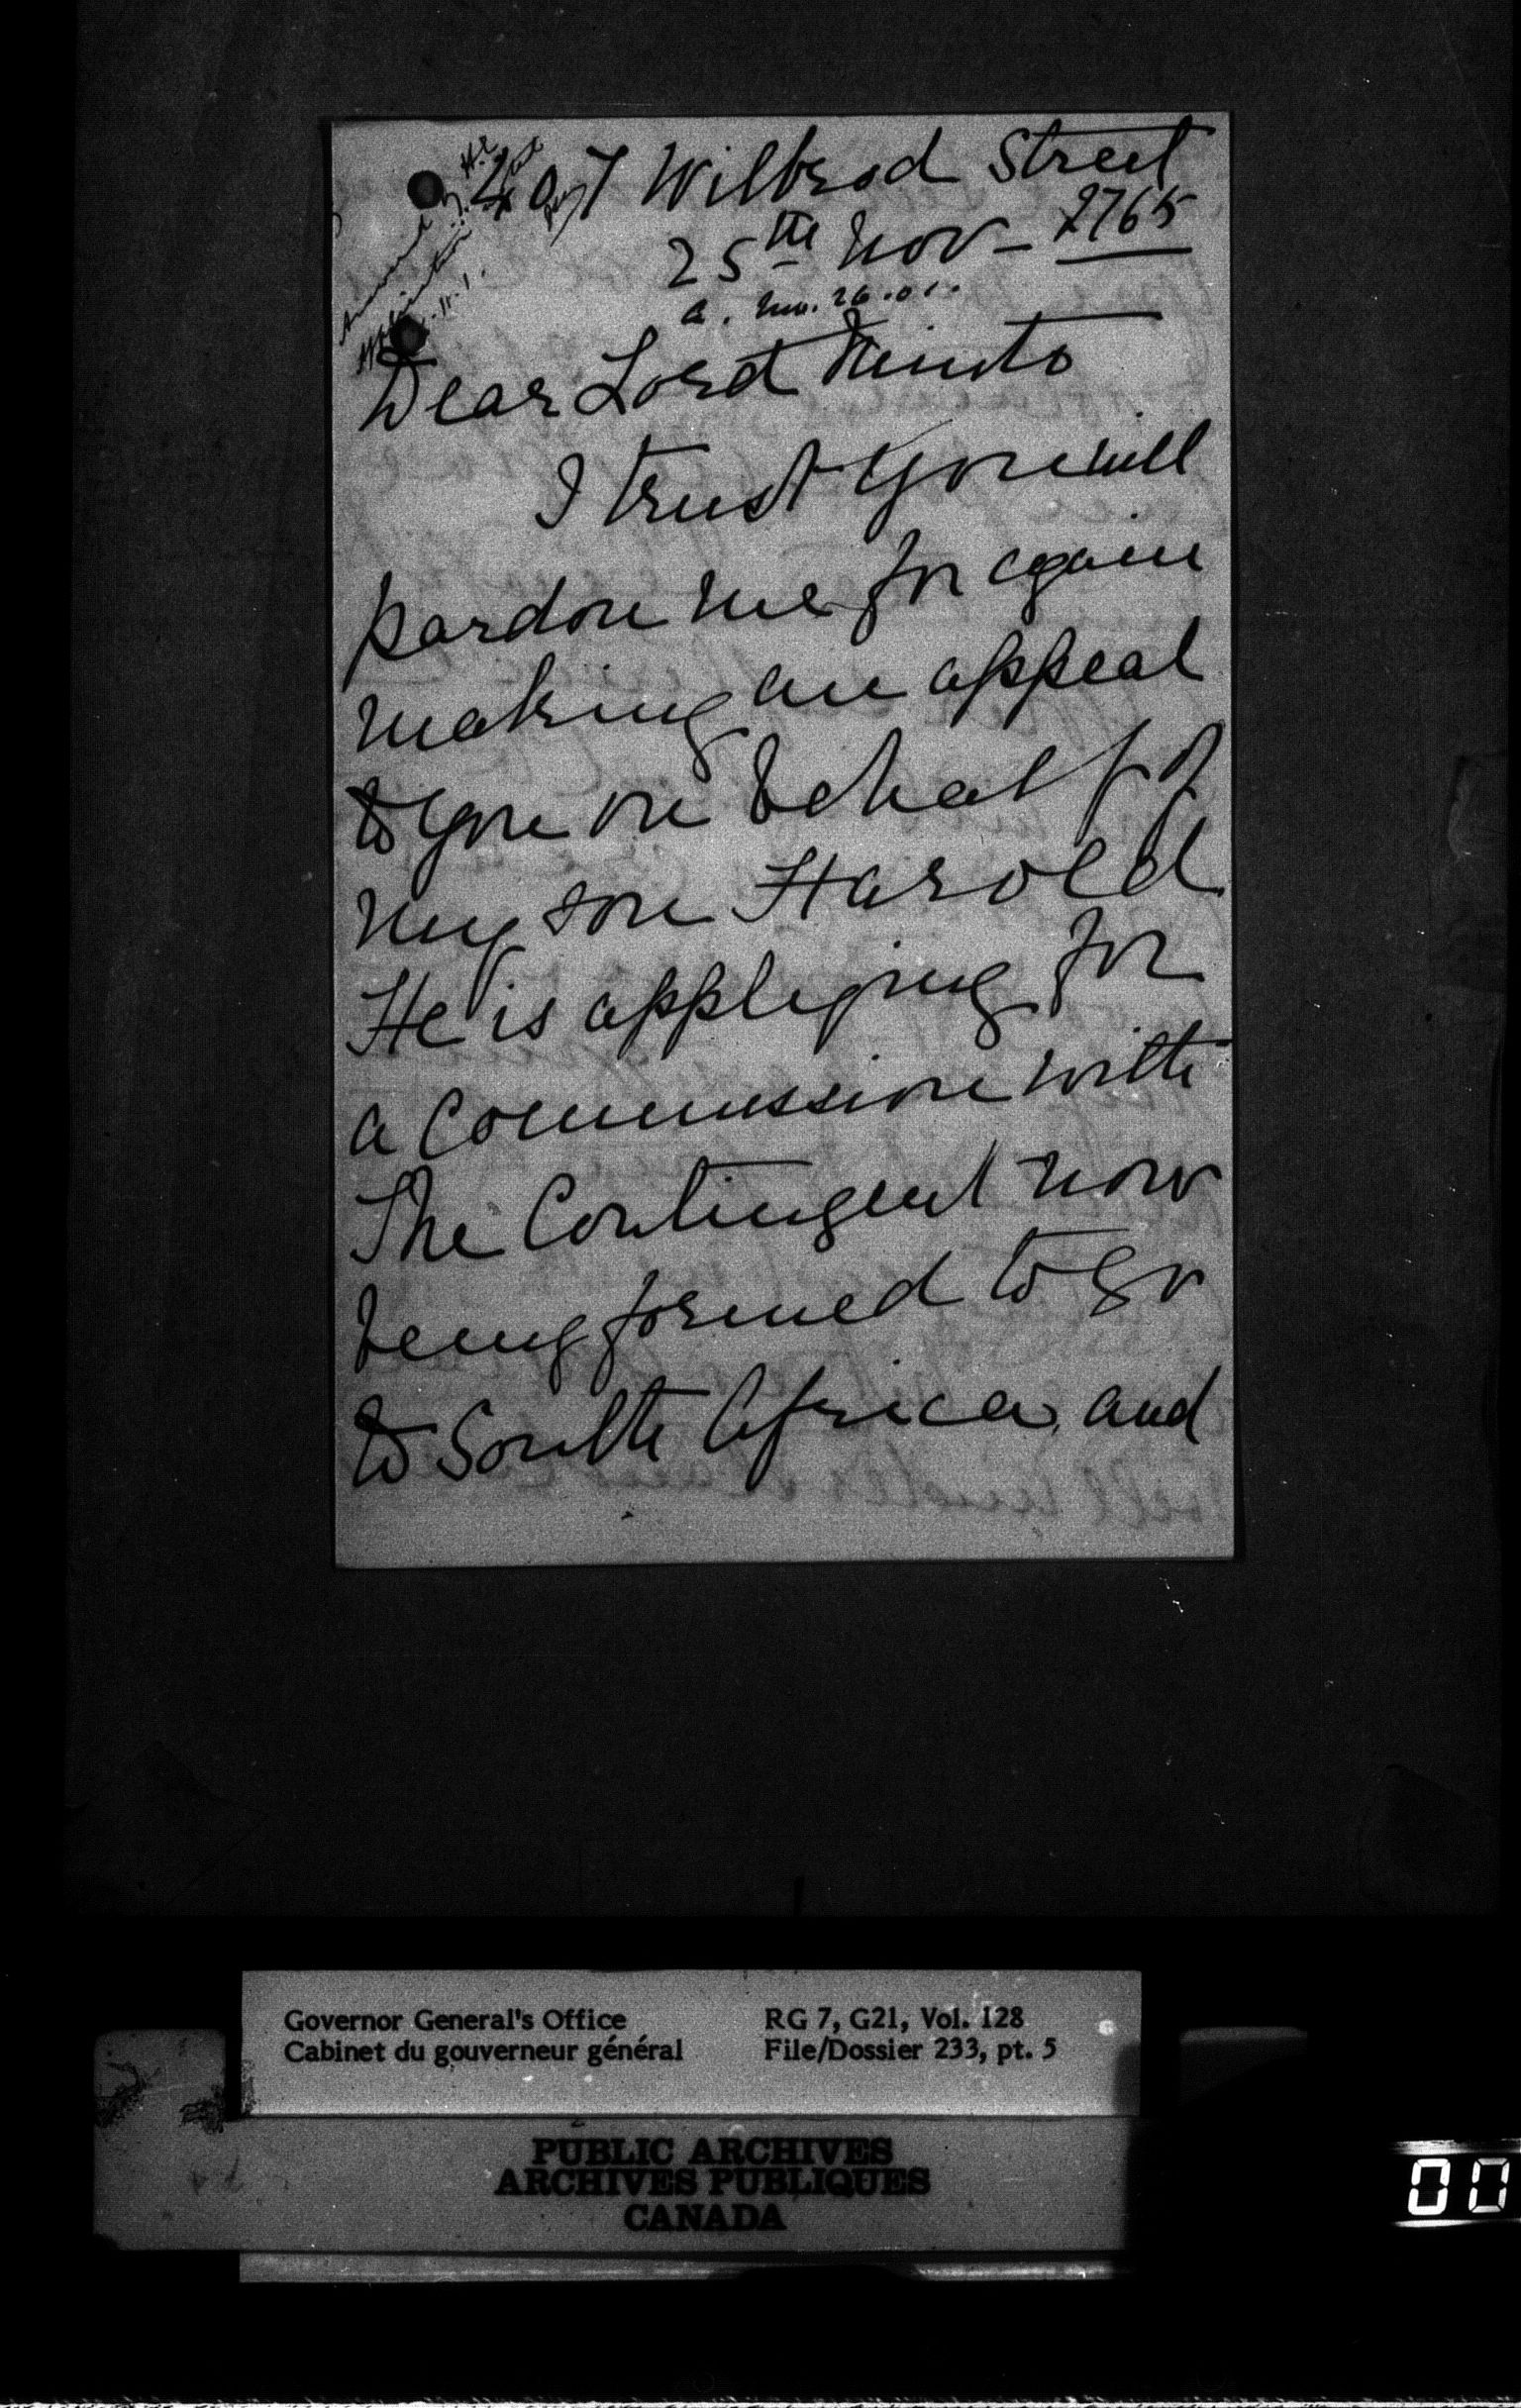 407 Wilbrod Street
25th Nov - 2765
a. Nov. 26.01.
Answered by H.E.
Dear Lord Minto
I trust you will
pardon me for again
making an appeal
to you on behalf of
my son Harold
He is applying for
a Commission with
The Contingent now
being formed to go
to South Africa, and
Governor General's Office
Cabinet du gouverneur général
RG 7, G21, Vol. 128
File/Dossier 233, pt. 5
PUBLIC ARCHIVES
ARCHIVES PUBLIQUES
CANADA
00